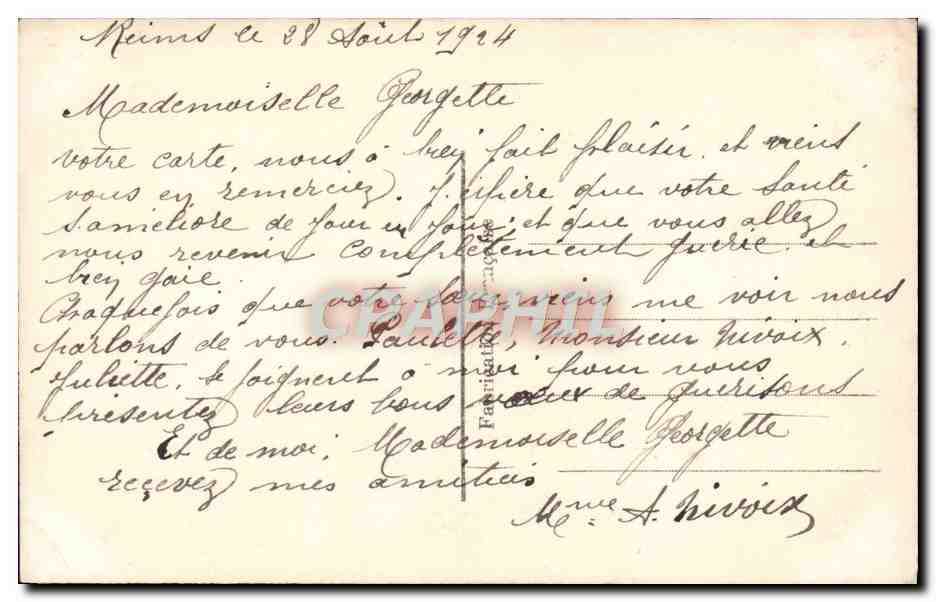 Reims le 28 Août 1924
Mademoiselle Georgette
votre carte, nous à bien fait plaisir. et viens
vous en remerciez. J'espère que votre santé
s'améliore de jour en jour, et que vous allez
nous revenir complètement guérie. et
bien gaie.
Chaquefois que votre sœur viens me voir nous
parlons de vous. Paulette, Monsieur Nivoix,
Juliette, se joignent à moi pour vous
présentez leurs bons vœux de guérisons
Et de moi, Mademoiselle Georgette
reçevez mes amitiés
Mme A. Nivoix
Fabrication Française
CPAPHIL